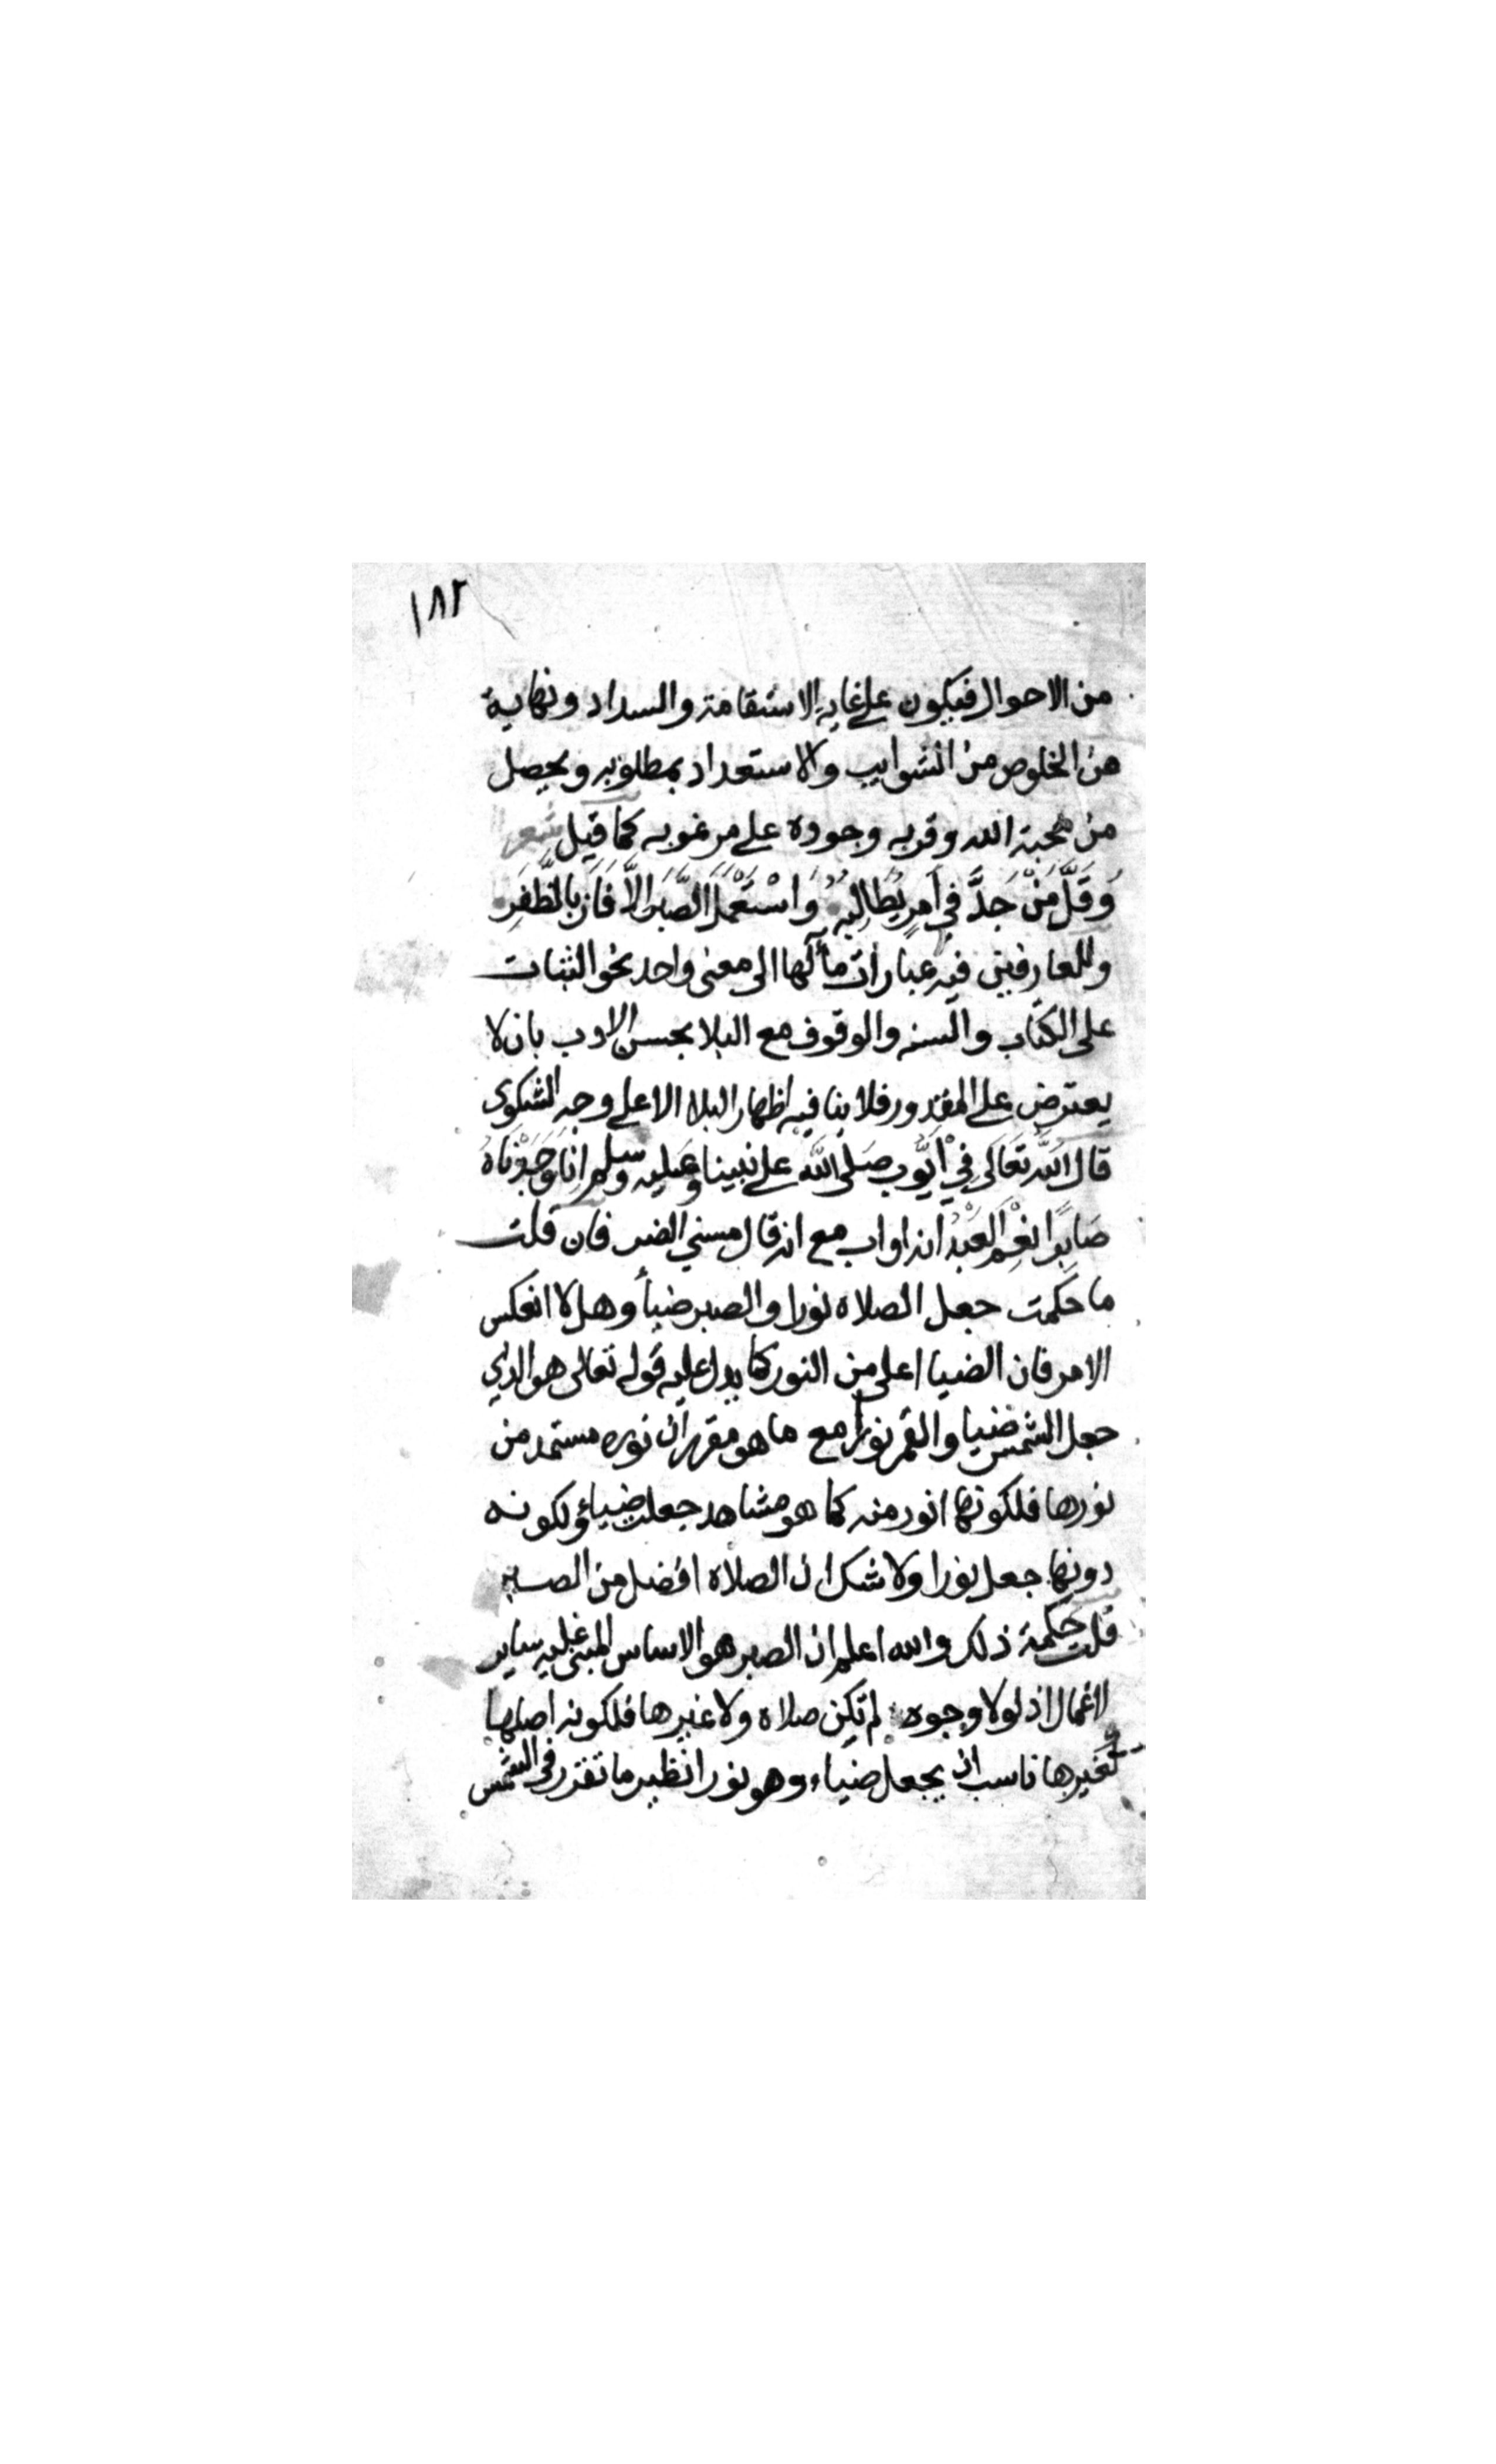 ١٨٢
من الاحوال فيكون على غايه الاستقامة والسداد ونهاية
من الخلوص من الشوايب والاستعداد بمطلوبه ويحصل
من محبة الله وقربه وجوده على مرغوبه كما قيل شعر
وَقَلَّ مَنْ جَدَّ فِي أَمرٍ يُطَالِبُهُ وَاسْتَعْمَلَ الصَّبْرَ إلاَّ فَازَ بالظَّفَرِ
وللعارفين فيه عبارات مآلها الى معنى واحد نحو الثبات
على الكتاب والسنه والوقوف مع البلا بحسن الادب بان لا
يعترض على المقدور فلا ينافيه اظهار البلا لا على وجه الشكوى
قال اللَّه تعَالَى فِي أيُّوب صَلى اللَّه على نبينا وعليه وسلم إنا وَجَدْنَاهُ
صَابِرًا نِعْمَ الْعَبْدُ انه اواب مع انه قال مسني الضر فان قلت
ما حكمت جعل الصلاه نورا والصبر ضيأ وهلا انعكس
الامر فان الضيا اعلى من النور كما يدل عليه قوله تعالى هو الذي
جعل الشمس ضيا والقمر نورا مع ما هو مقرر ان نوره مستمد من
نورها فلكونها انور منه كما هو مشاهد جعلت ضياء ولكونه
دونها جعل نورا ولا شك ان الصلاة افضل من الصبر
قلت حكمة ذلك والله اعلم ان الصبر هو الاساس المبنى عليه ساير
الاعمال اذ لولا وجوده لم تكن صلاه ولا غيرها فلكونه اصلها
كغيرها ناسب ان يجعل ضياء وهو نورا نظير ما تقرر في الشمس